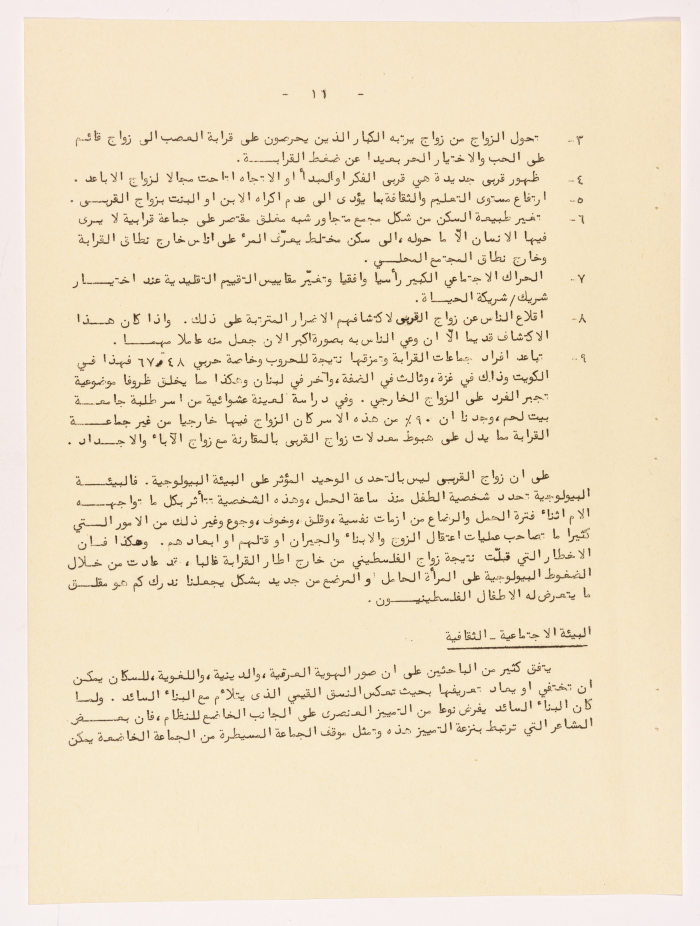 - ١٦ -
٣- تحول الزواج من زواج يرتبه الكبار الذين يحرصون على قرابة العصب الى زواج قائم
على الحب والاختيار الحر بعيدا عن ضغط القرابــــة .
٤- ظهور قربى جديدة هي قربى الفكر او المبدأ او الاتجاه اتاحت مجالا لزواج الاباعد .
٥- ارتفاع مستوى التعليم والثقافة بما يؤدى الى عدم اكراه الابن او البنت بزواج القربــى .
٦- تغير طبيعة السكن من شكل مجمع متجاور شبه مغلق مقتصر على جماعة قرابية لا يـرى
فيها الانسان الاّ ما حوله ، الى سكن مختلط يعرّف المرء على اناس خارج نطاق القرابة
وخارج نطاق المجتمع المحلــي .
٧- الحراك الاجتماعي الكبير رأسيا وافقيا وتغيّر مقاييس التقييم التقليدية عند اختيـــار
شريك/شريكة الحيــاة .
٨- اقلاع الناس عن زواج القربى لاكتشافهم الاضرار المترتبة على ذلك . واذا كان هـــذا
الاكتشاف قديما الاّ ان وعي الناس به بصورة اكبر الان جعل منه عاملا مهمــــا .
٩- تباعد افراد جماعات القرابة وتمزقها نتيجة للحروب وخاصة حربي ٤٨ و ٦٧ فهذا فــي
الكويت وذاك في غزة ، وثالث في الضفة ، وآخر في لبنان وهكذا مما يخلق ظروفا موضوعية
تجبر الفرد على الزواج الخارجي . وفي دراسة لعينة عشوائية من اسر طلبة جامعـــة
بيت لحم ، وجدنا ان ٩٠٪ من هذه الاسر كان الزواج فيها خارجيا من غير جماعــــة
القرابة مما يدل على هبوط معدلات زواج القربى بالمقارنة مع زواج الآباء والاجــداد .
على ان زواج القربى ليس بالتحدى الوحيد المؤثر على البيئة البيولوجية . فالبيئــــة
البيولوجية تحدد شخصية الطفل منذ ساعة الحمل ، وهذه الشخصية تتأثر بكل ما تواجهــــه
الام اثناء فترة الحمل والرضاع من ازمات نفسية ، وقلق ، وخوف ، وجوع وغير ذلك من الامور الـتي
كثيرا ما تصاحب عمليات اعتقال الزوج والابناء والجيران او قتلهم او ابعادهم . وهكذا فــان
الاخطار التي قبلّت نتيجة زواج الفلسطيني من خارج اطار القرابة غالبا ، قد عادت من خــلال
الضغوط البيولوجية على المرأة الحامل او المرضع من جديد بشكل يجعلنا ندرك كم هو مقلــق
ما يتعرض له الاطفال الفلسطينيــــون .
البيئة الاجتماعية - الثقافية
يتفق كثير من الباحثين على ان صور الهوية العرقية ، والدينية ، واللغوية ، للسكان يمكـن
ان تختفي او يعاد تعريفها بحيث تعكس النسق القيمي الذى يتلاءم مع البناء السائد . ولمـا
كان البناء السائد يفرض نوعا من التمييز العنصرى على الجانب الخاضع للنظام ، فان بعــــض
المشاعر التي ترتبط بنزعة التمييز هذه وتمثل موقف الجماعة المسيطرة من الجماعة الخاضعة يمكن